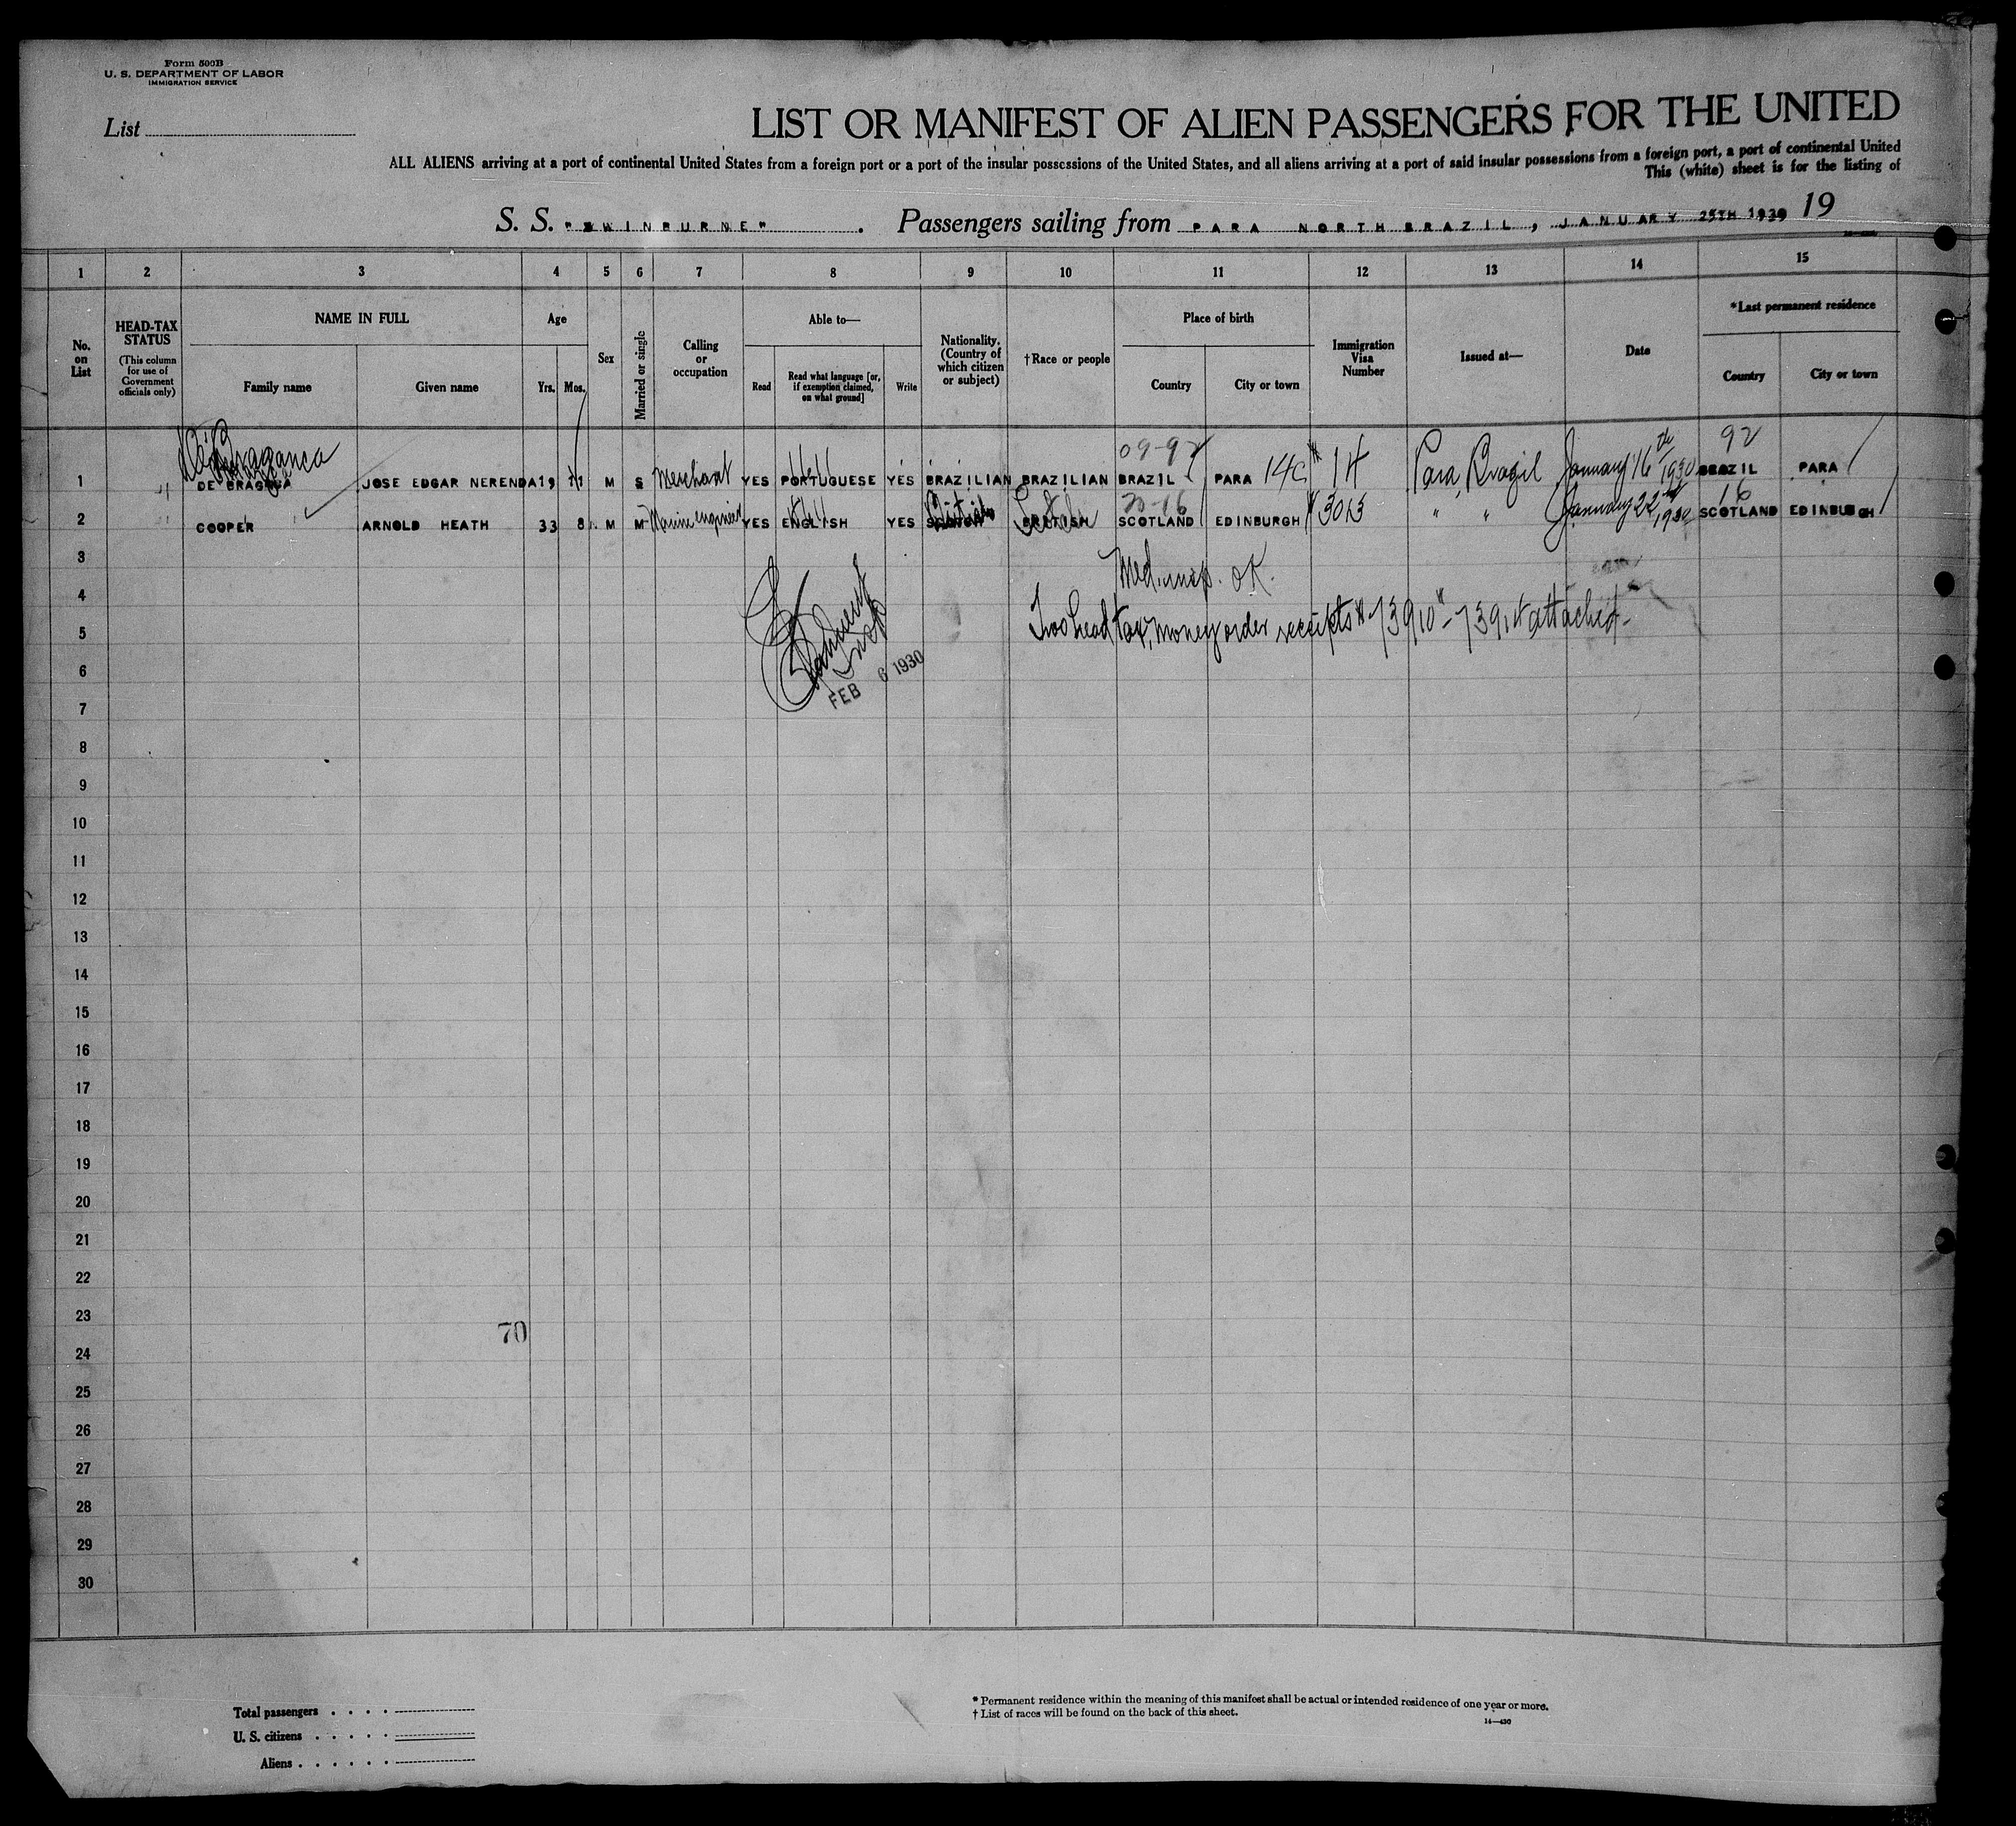 Form 500B
U. S. DEPARTMENT OF LABOR
IMMIGRATION SERVICE
List
LIST OR MANIFEST OF ALIEN PASSENGERS FOR THE UNITED
ALL ALIENS arriving at a port of continental United States from a foreign port or a port of the insular possessions of the United States, and all aliens arriving at a port of said insular possessions from a foreign port, a port of continental United
This (white) sheet is for the listing of
S. S. "SWINBURNE". Passengers sailing from PARA NORTH BRAZIL, JANUARY 25TH 1930 19
1 2 3 4 5 6 7 8 9 10 11 12 13 14 15
No. on List
HEAD-TAX STATUS
(This column for use of Government officials only)
NAME IN FULL
Family name
Given name
Age
Yrs. Mos.
Sex
Married or single
Calling or occupation
Able to—
Read
Read what language [or, if exemption claimed, on what ground]
Write
Nationality. (Country of which citizen or subject)
†Race or people
Place of birth
Country
City or town
Immigration Visa Number
Issued at—
Date
*Last permanent residence
Country
City or town
De Braganca 09-92 92
1 DE BRAGANCA JOSE EDGAR NERENDA 19 11 M S Merchant YES PORTUGUESE YES BRAZILIAN BRAZILIAN BRAZIL PARA 14c #14 Para, Brazil January 16th 1930 BRAZIL PARA
20-16 16
2 COOPER ARNOLD HEATH 33 8 M M Marine engineer YES ENGLISH YES British Scotch BRITISH SCOTLAND EDINBURGH #3013 " " January 22nd 1930 SCOTLAND EDINBURGH
3
Med. insp. OK.
4
Two head tax, money order receipts # 73910 - 73914 attached-
5
Insp
6
FEB 6 1930
7
8
9
10
11
12
13
14
15
16
17
18
19
20
21
22
23
70
24
25
26
27
28
29
30
Total passengers
U. S. citizens
Aliens
* Permanent residence within the meaning of this manifest shall be actual or intended residence of one year or more.
† List of races will be found on the back of this sheet.
14—430